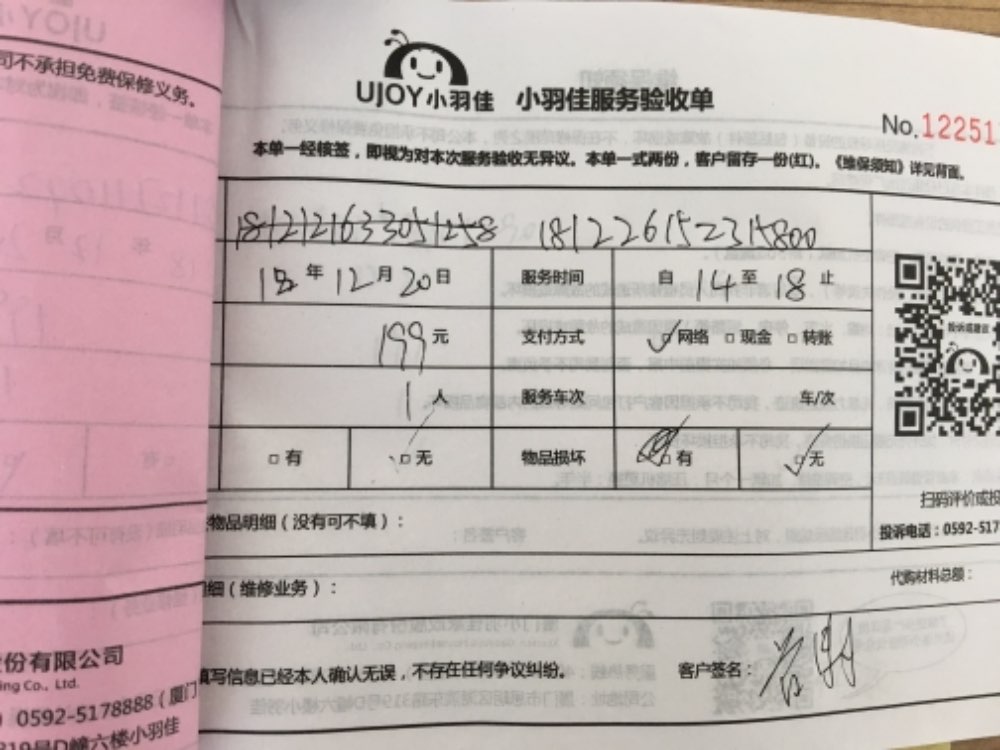 司不承担免费保修义务。
UJOY小羽佳 小羽佳服务验收单
No.12251
本单一经核签，即视为对本次服务验收无异议。本单一式两份，客户留存一份(红)。《维保须知》详见背面。
1812121633051258 181226152315800
18年12月20日 服务时间 自14至18止
199元 支付方式 网络 现金 转账
1人 服务车次 车/次
有 无 物品损坏 有 无
扫码评价或投
物品明细（没有可不填）：
投诉电话：0592-517
细（维修业务）：
代购材料总额：
填写信息已经本人确认无误，不存在任何争议纠纷。 客户签名：
份有限公司
ing Co., Ltd.
0592-5178888（厦门
319号D幢六楼小羽佳